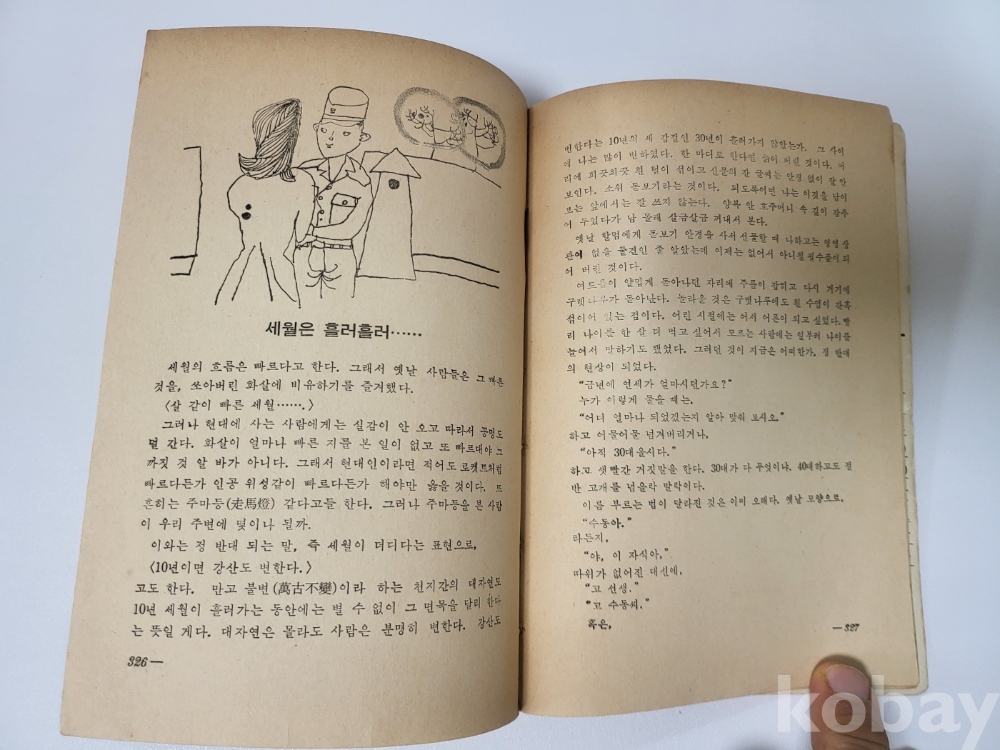 세월은 흘러흘러……
세월의 흐름은 빠르다고 한다. 그래서 옛날 사람들은 그 빠른
것을, 쏘아버린 화살에 비유하기를 즐겨했다.
〈살 같이 빠른 세월…….〉
그러나 현대에 사는 사람에게는 실감이 안 오고 따라서 공명도
덜 간다. 화살이 얼마나 빠른 지를 본 일이 없고 또 빠르대야 그
까짓 것 알 바가 아니다. 그래서 현대인이라면 적어도 로켓트처럼
빠르다든가 인공 위성같이 빠르다든가 해야만 옳을 것이다. 또
흔히는 주마등(走馬燈) 같다고들 한다. 그러나 주마등을 본 사람
이 우리 주변에 몇이나 될까.
이와는 정 반대 되는 말, 즉 세월이 더디다는 표현으로,
〈10년이면 강산도 변한다.〉
고도 한다. 만고 불변(萬古不變)이라 하는 천지간의 대자연도
10년 세월이 흘러가는 동안에는 별 수 없이 그 면목을 달리 한다
는 뜻일 게다. 대자연은 몰라도 사람은 분명히 변한다. 강산도
326 —
변한다는 10년의 세 갑절인 30년이 흘러가지 않았는가. 그 사이
에 나는 많이 변하였다. 한 마디로 한다면 늙어 버린 것이다. 머
리에 희끗희끗 흰 털이 섞이고 신문의 잔 글씨는 안경 없이 잘 안
보인다. 소위 돋보기라는 것이다. 되도록이면 나는 이것을 남이
보는 앞에서는 잘 쓰지 않는다. 양복 안 호주머니 속 깊이 감추
어 두었다가 남 몰래 살금살금 꺼내서 본다.
옛날 할멈에게 돋보기 안경을 사서 선물할 때 나하고는 영영 상
관이 없을 물건인 줄 알았는데 이제는 없어서 아니될 필수품이 되
어 버린 것이다.
여드름이 얄밉게 돋아나던 자리에 주름이 잡히고 다시 거기에
구렛나루가 돋아난다. 놀라울 것은 구렛나루에도 흰 수염이 간혹
섞이어 있는 점이다. 어린 시절에는 어서 어른이 되고 싶었다. 빨
리 나이를 한 살 더 먹고 싶어서 모르는 사람에는 일부러 나이를
늘여서 말하기도 했었다. 그러던 것이 지금은 어떠한가. 정 반대
의 현상이 되었다.
“금년에 연세가 얼마시던가요?”
누가 이렇게 물을 때는,
“어디 얼마나 되었겠는지 알아 맞춰 보시오.”
하고 어물어물 넘겨버리거나,
“아직 30대올시다.”
하고 샛빨간 거짓말을 한다. 30대가 다 무엇이냐. 40대하고도 절
반 고개를 넘을락 말락이다.
이름 부르는 법이 달라진 것은 이미 오래다. 옛날 모양으로,
“수동아.”
라든지,
“야, 이 자식아,”
따위가 없어진 대신에,
“고 선생.”
“고 수동씨.”
혹은,
— 327
kobay